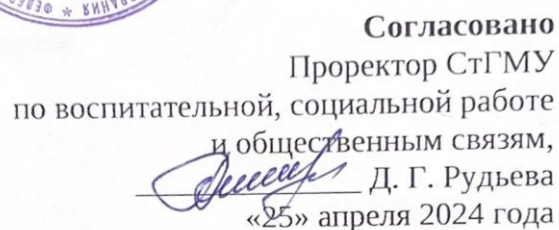 Согласовано
Проректор СтГМУ
по воспитательной, социальной работе
и общественным связям,
Д. Г. Рудьева
«25» апреля 2024 года